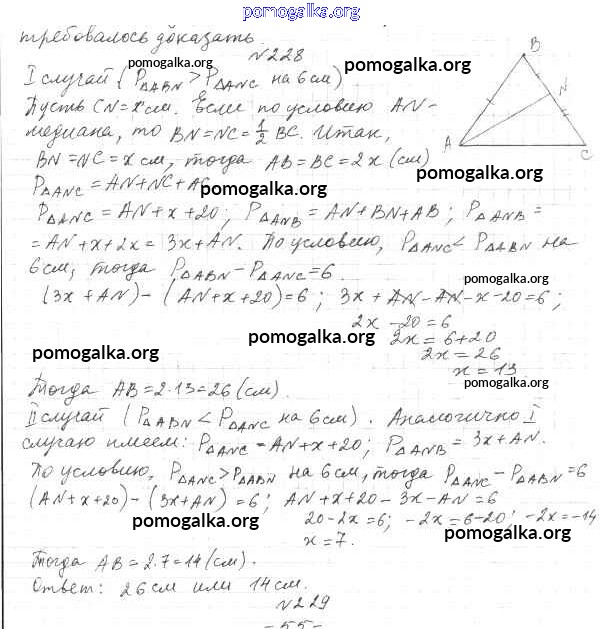 pomogalka.org
требовалось доказать.
№228
I случай (P△ABN > P△ANC на 6см)
pomogalka.org
Пусть CN=x см. Если по условию AN-
медиана, то BN=NC=1/2 BC. Итак,
BN=NC=x см, тогда AB=BC=2x (см)
P△ANC=AN+NC+AC
pomogalka.org
P△ANC=AN+x+20; P△ANB=AN+BN+AB; P△ANB=
=AN+x+2x=3x+AN. По условию, P△ANC<P△ABN на
6см, тогда P△ABN-P△ANC=6.
pomogalka.org
(3x+AN)-(AN+x+20)=6; 3x+AN-AN-x-20=6;
2x-20=6
pomogalka.org
2x=6+20
2x=26
pomogalka.org
x=13
pomogalka.org
Тогда AB=2·13=26 (см).
II случай (P△ABN<P△ANC на 6см). Аналогично I
случаю имеем: P△ANC=AN+x+20; P△ANB=3x+AN.
По условию, P△ANC>P△ABN на 6см, тогда P△ANC-P△ABN=6
(AN+x+20)-(3x+AN)=6; AN+x+20-3x-AN=6
pomogalka.org
20-2x=6; -2x=6-20; -2x=-14
x=7.
pomogalka.org
Тогда AB=2·7=14 (см).
Ответ: 26 см или 14 см.
№229
-55-
B
N
A
C